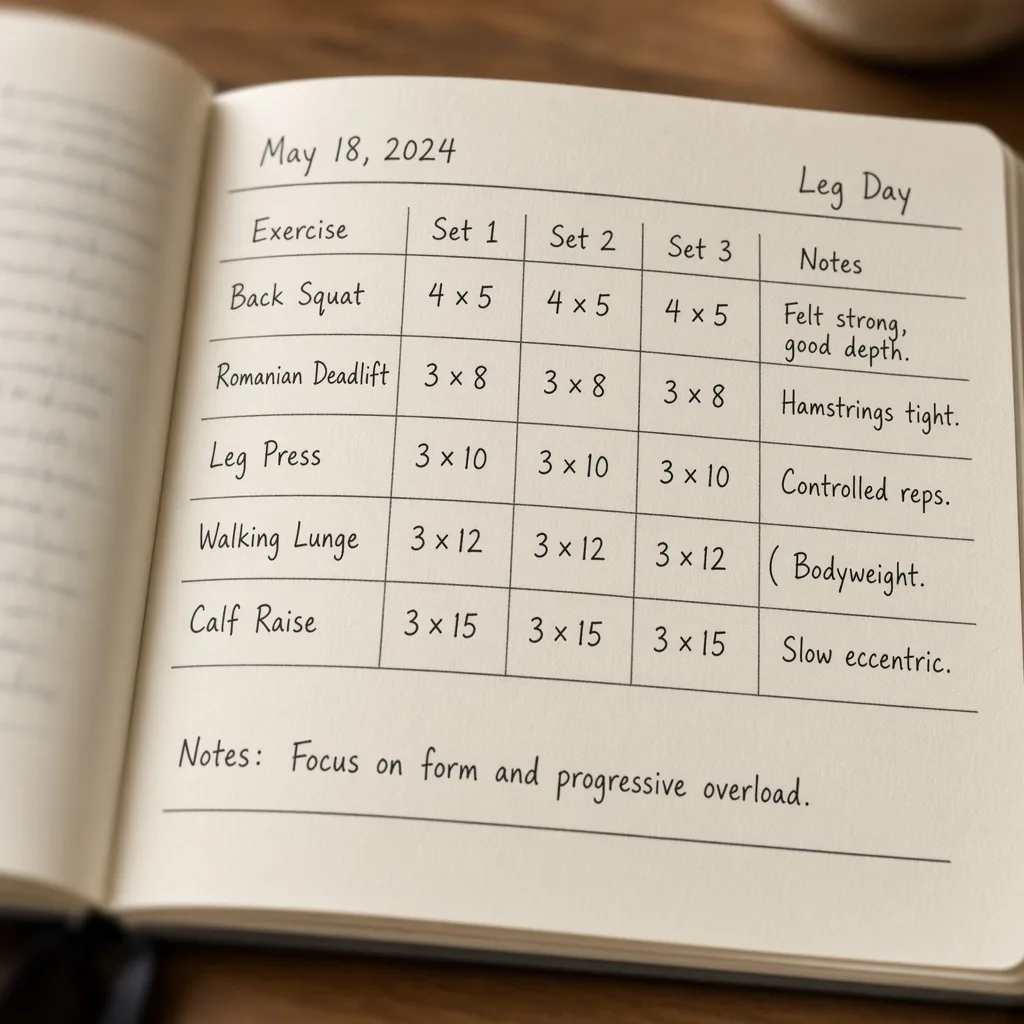 May 18, 2024
Leg Day
Exercise Set 1 Set 2 Set 3 Notes
Back Squat 4 × 5 4 × 5 4 × 5 Felt strong,
good depth.
Romanian Deadlift 3 × 8 3 × 8 3 × 8 Hamstrings tight.
Leg Press 3 × 10 3 × 10 3 × 10 Controlled reps.
Walking Lunge 3 × 12 3 × 12 3 × 12 ( Bodyweight.
Calf Raise 3 × 15 3 × 15 3 × 15 Slow eccentric.
Notes: Focus on form and progressive overload.